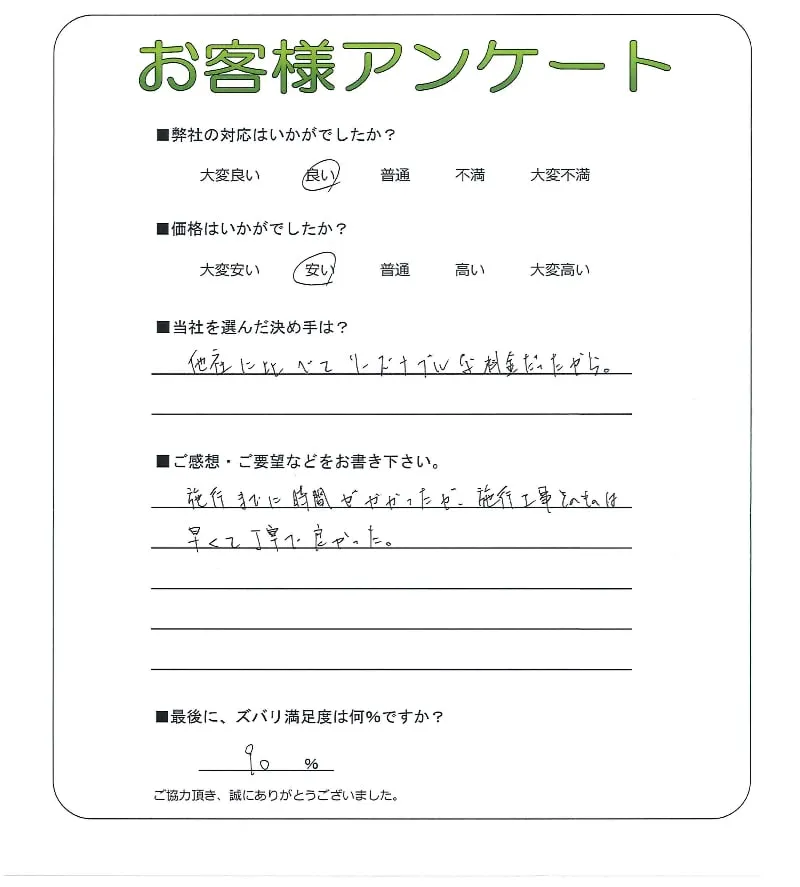 お客様アンケート
■弊社の対応はいかがでしたか？
大変良い 良い 普通 不満 大変不満
■価格はいかがでしたか？
大変安い 安い 普通 高い 大変高い
■当社を選んだ決め手は？
他社に比べてリーズナブルな料金だったから。
■ご感想・ご要望などをお書き下さい。
施行までに時間がかかったが、施行工事そのものは
早くて丁寧で良かった。
■最後に、ズバリ満足度は何%ですか？
90 %
ご協力頂き、誠にありがとうございました。